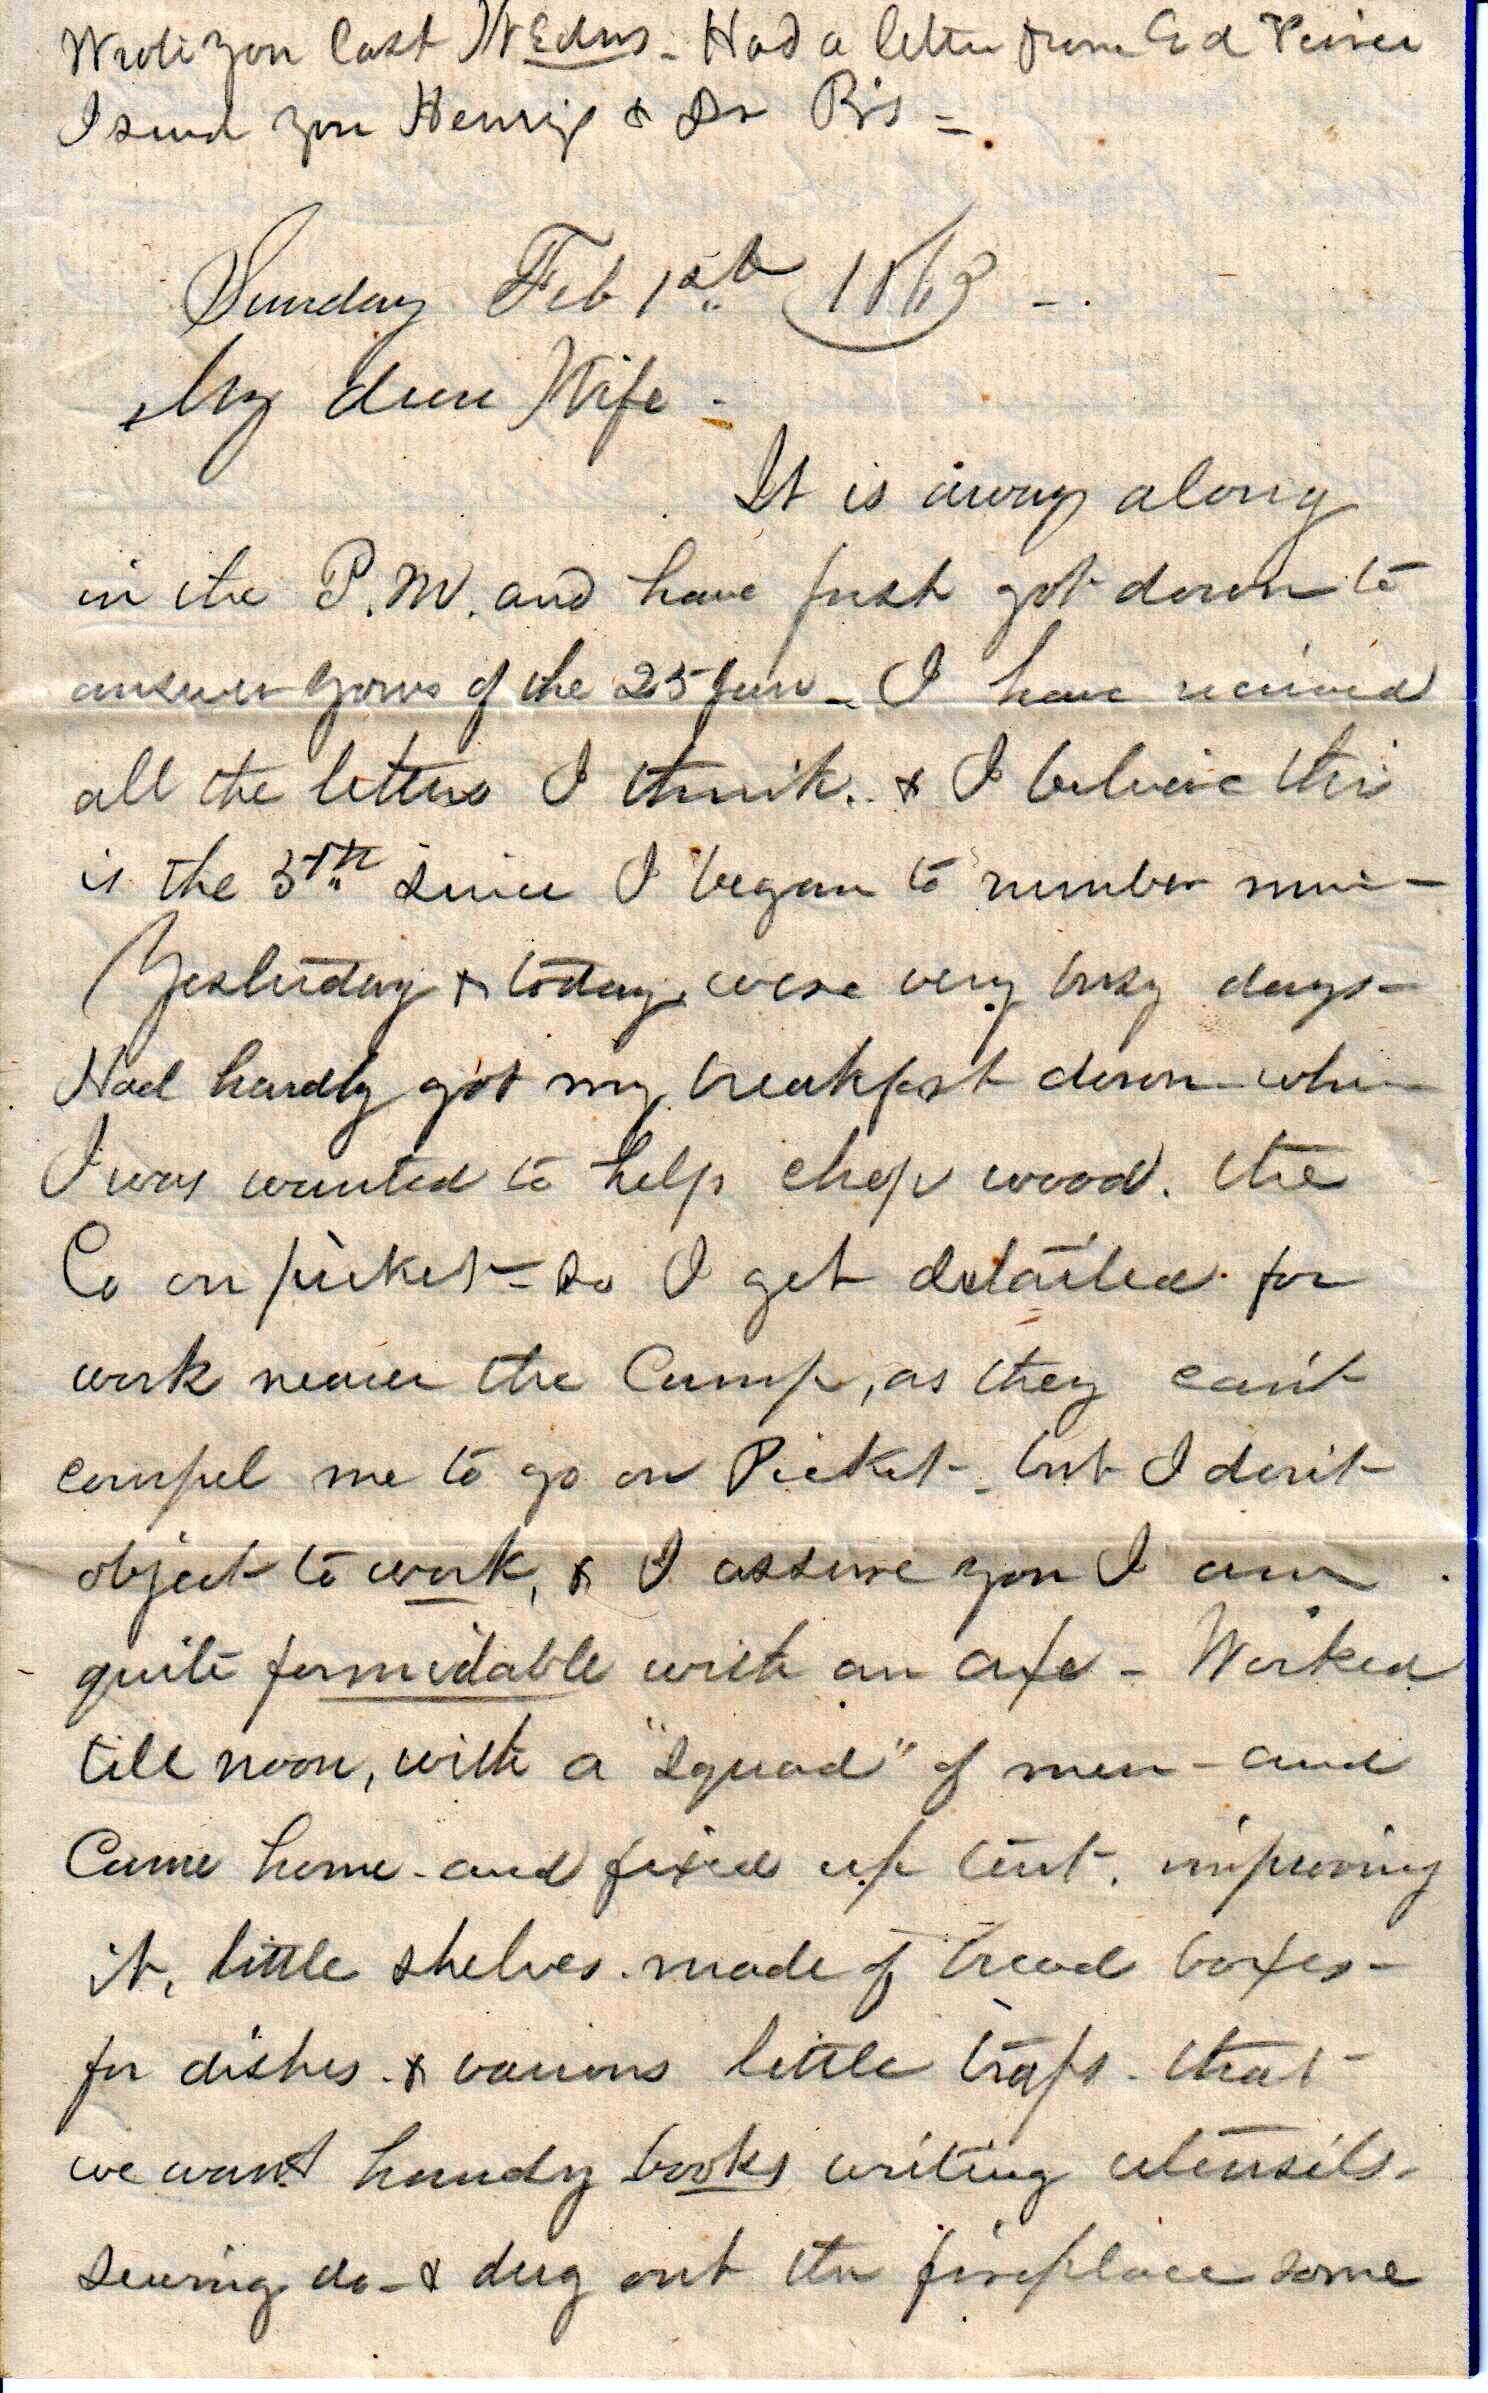 Wrote you last Wedns - Had a letter from Ed
I send you Henrys & Dr B's =
Sunday Feb 1st 1863 -
My dear Wife -
It is away along
in the P.M. and have just got down to
answer yours of the 25 Jan - I have received
all the letters I think. & I beleive this
is the 5th since I began to number mine -
Yesterday & today were very busy days -
Had hardly got my breakfast down when
I was wanted to help chop wood. the
Co on picket - so I get detailed for
work nearer the Camp, as they can't
compel me to go on Picket - but I don't
object to work, & I assure you I am
quite formidable with an axe - Worked
till noon, with a "squad" of men - and
Came home - and fixed up tent. improving
it, little shelves made of bread boxes -
for dishes - & various little traps - that
we want handy books writing utensils -
sewing do - & dug out the fireplace some